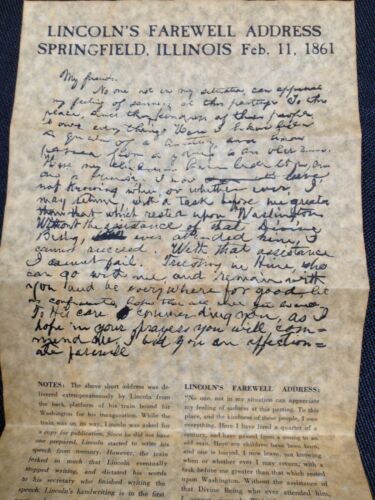 LINCOLN'S FAREWELL ADDRESS
SPRINGFIELD, ILLINOIS Feb. 11, 1861
My friends.
No one not in my situation can appreciate
my feeling of sadness at this parting. To this
place, and the kindness of these people,
I owe every thing. Here I have lived
a quarter of a century, and have
passed from a young to an old man.
Here my children have been born, and
one is buried. I now leave
not knowing when or whether ever, I
may return, with a task before me greater
than that which rested upon Washington
Without the assistance of that Divine
Being, ever attended him, I
cannot succeed. With that assistance
I cannot fail. Trusting in Him, who
can go with me, and remain with
you and be everywhere for good, let
us confidently hope that all will yet be
To His care commending you, as I
hope in your prayers you will com-
mend me, I bid you an affection-
ate farewell
NOTES: The above short address was de-
livered extemporaneously by Lincoln from
the back platform of his train bound for
Washington for his inauguration. While the
train was on its way, Lincoln was asked for
a copy for publication. Since he did not have
one prepared, Lincoln started to write his
speech from memory. However, the train
jerked so much that Lincoln eventually
stopped writing, and dictated his words
to his secretary who finished writing the
speech. Lincoln's handwriting is in the first
LINCOLN'S FAREWELL ADDRESS:
"No one, not in my situation can appreciate
my feeling of sadness at this parting. To this
place, and the kindness of these people, I owe
everything. Here I have lived a quarter of a
century, and have passed from a young to an
old man. Here my children have been born,
and one is buried. I now leave, not knowing
when or whether ever I may return, with a
task before me greater than that which rested
upon Washington. Without the assistance of
that Divine Being who ever attended him,